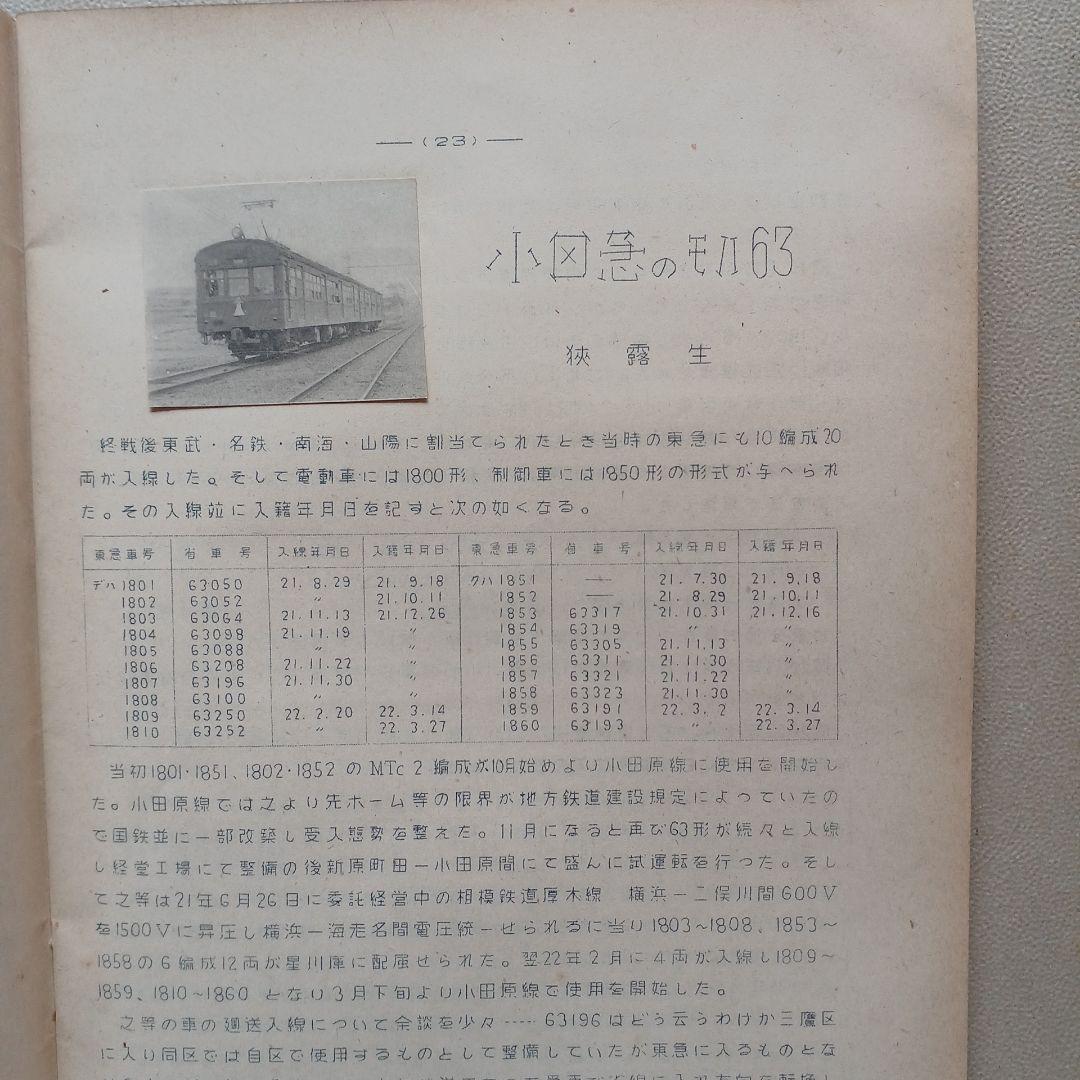 (23)
小田急のモハ63
狭露生
終戦後東武・名鉄・南海・山陽に割当てられたとき当時の東急にも10編成20
両が入線した。そして電動車には1800形、制御車には1850形の形式が与へられ
た。その入線並に入籍年月日を記すと次の如くなる。
東急車号 省車号 入線年月日 入籍年月日 東急車号 省車号 入線年月日 入籍年月日
デハ1801 63050 21. 8.29 21. 9.18 クハ1851 —— 21. 7.30 21. 9.18
1802 63052 〃 21.10.11 1852 —— 21. 8.29 21.10.11
1803 63064 21.11.13 21.12.26 1853 63317 21.10.31 21.12.16
1804 63098 21.11.19 〃 1854 63319 〃 〃
1805 63088 〃 〃 1855 63305 21.11.13 〃
1806 63208 21.11.22 〃 1856 63311 21.11.30 〃
1807 63196 21.11.30 〃 1857 63321 21.11.22 〃
1808 63100 〃 〃 1858 63323 21.11.30 〃
1809 63250 22. 2.20 22. 3.14 1859 63191 22. 3. 2 22. 3.14
1810 63252 〃 22. 3.27 1860 63193 〃 22. 3.27
当初1801・1851、1802・1852のMTc2編成が10月始めより小田原線に使用を開始し
た。小田原線では之より先ホーム等の限界が地方鉄道建設規定によっていたの
で国鉄並に一部改築し受入態勢を整えた。11月になると再び63形が続々と入線
し経堂工場にて整備の後新原町田ー小田原間にて盛んに試運転を行つた。そし
て之等は21年6月26日に委託経営中の相模鉄道厚木線 横浜ー二俣川間600V
を1500Vに昇圧し横浜ー海老名間電圧統一せられるに当り1803~1808、1853~
1858の6編成12両が星川庫に配属せられた。翌22年2月に4両が入線し1809~
1859、1810~1860となり3月下旬より小田原線で使用を開始した。
之等の車の廻送入線について余談を少々‥‥‥63196はどう云うわけか三鷹区
に入り同区では自区で使用するものとして整備していたが東急に入るものとな